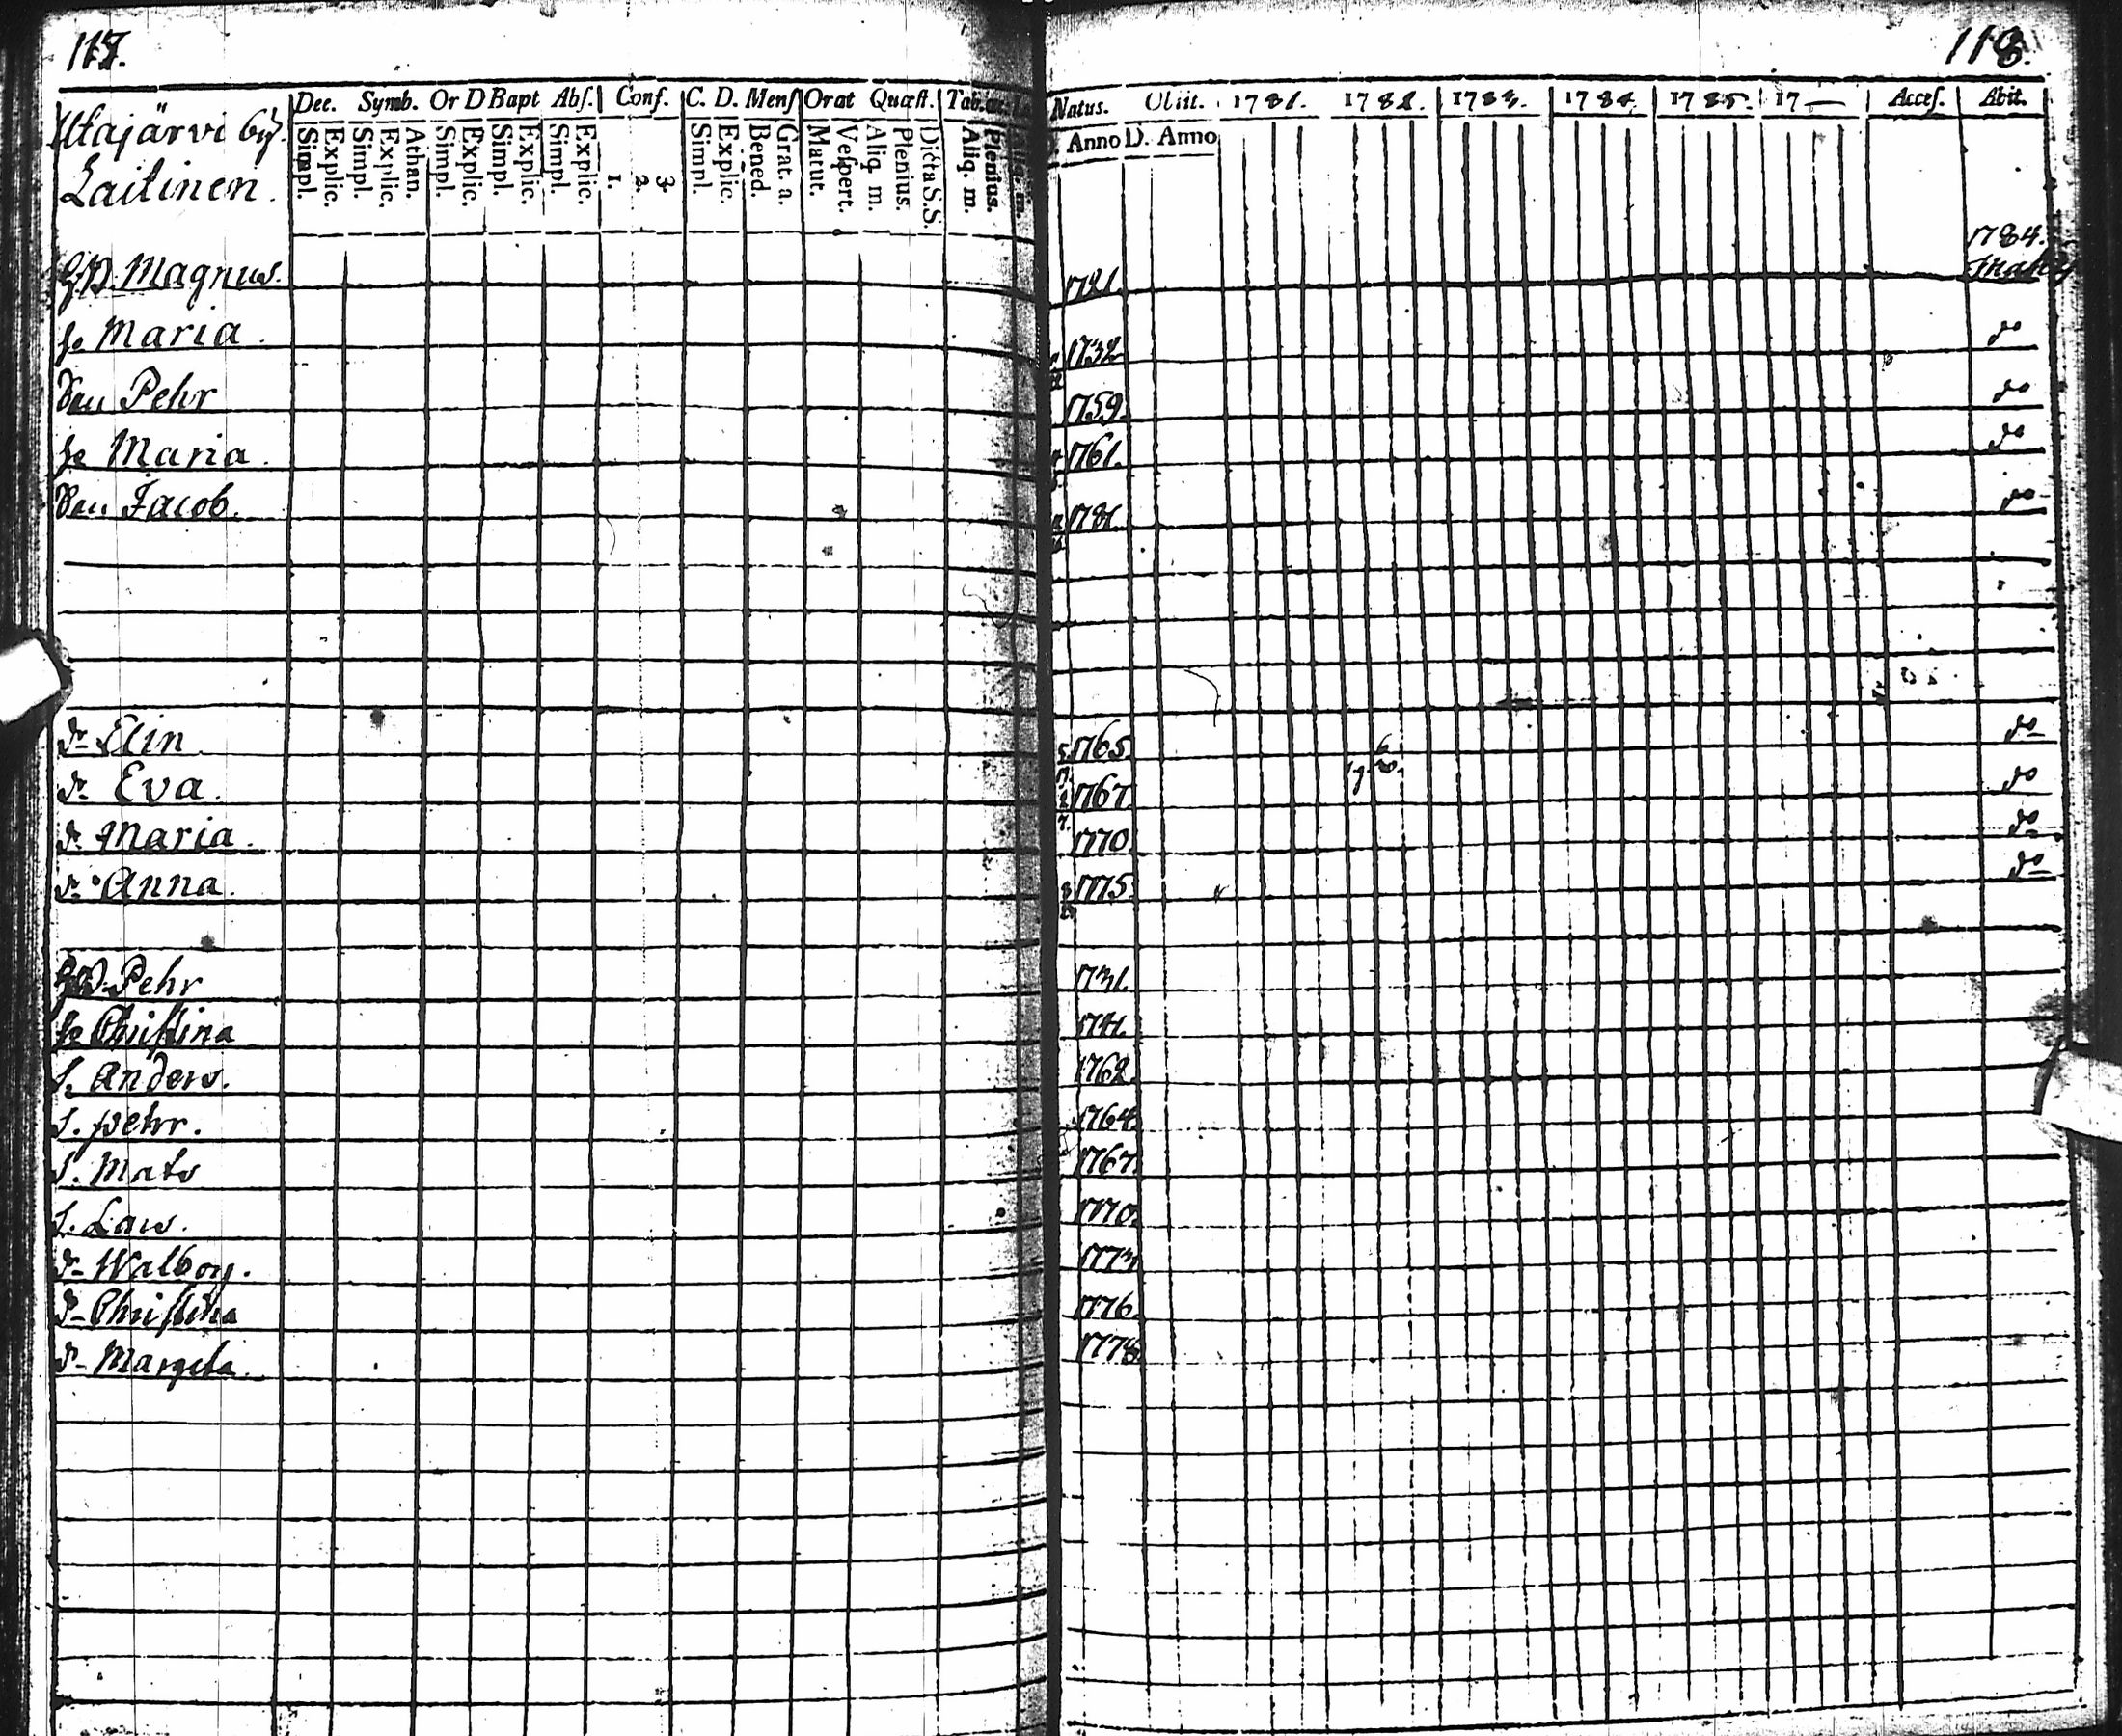 117.
118.
Dec. Symb. Or D Bapt Abſ. Conf. C. D. Menſ Orat Quæſt.
Natus. Obiit. 1781. 1782. 1783. 1784. 1785. 17— Acceſ. Abit.
Simpl. Explic. Simpl. Explic. Athan. Simpl. Explic. Simpl. Explic. Simpl. Explic. 1. 2. 3. Simpl. Explic. Bened. Grat. a. Matut. Veſpert. Aliq. m. Plenius. Dicta S. S. Aliq. m. Plenius.
Anno D. Anno
Utajärvi by.
Laitinen.
Magnus. 1721. 1784.
Maria. 1732 do
Pehr 1759. do
Maria. 1761. do
Jacob. 1781. do
dr. Elin 1765. do
dr. Eva. 1767 do
dr. Maria. 1770. do
dr. Anna. 1775. do
Pehr 1731.
Christina 1741.
S. Anders. 1762.
S. pehr. 1764.
S. Mats 1767.
S. Lars. 1770.
dr. Walborg. 1773
dr. Christina 1776.
dr. Margeta. 1778.